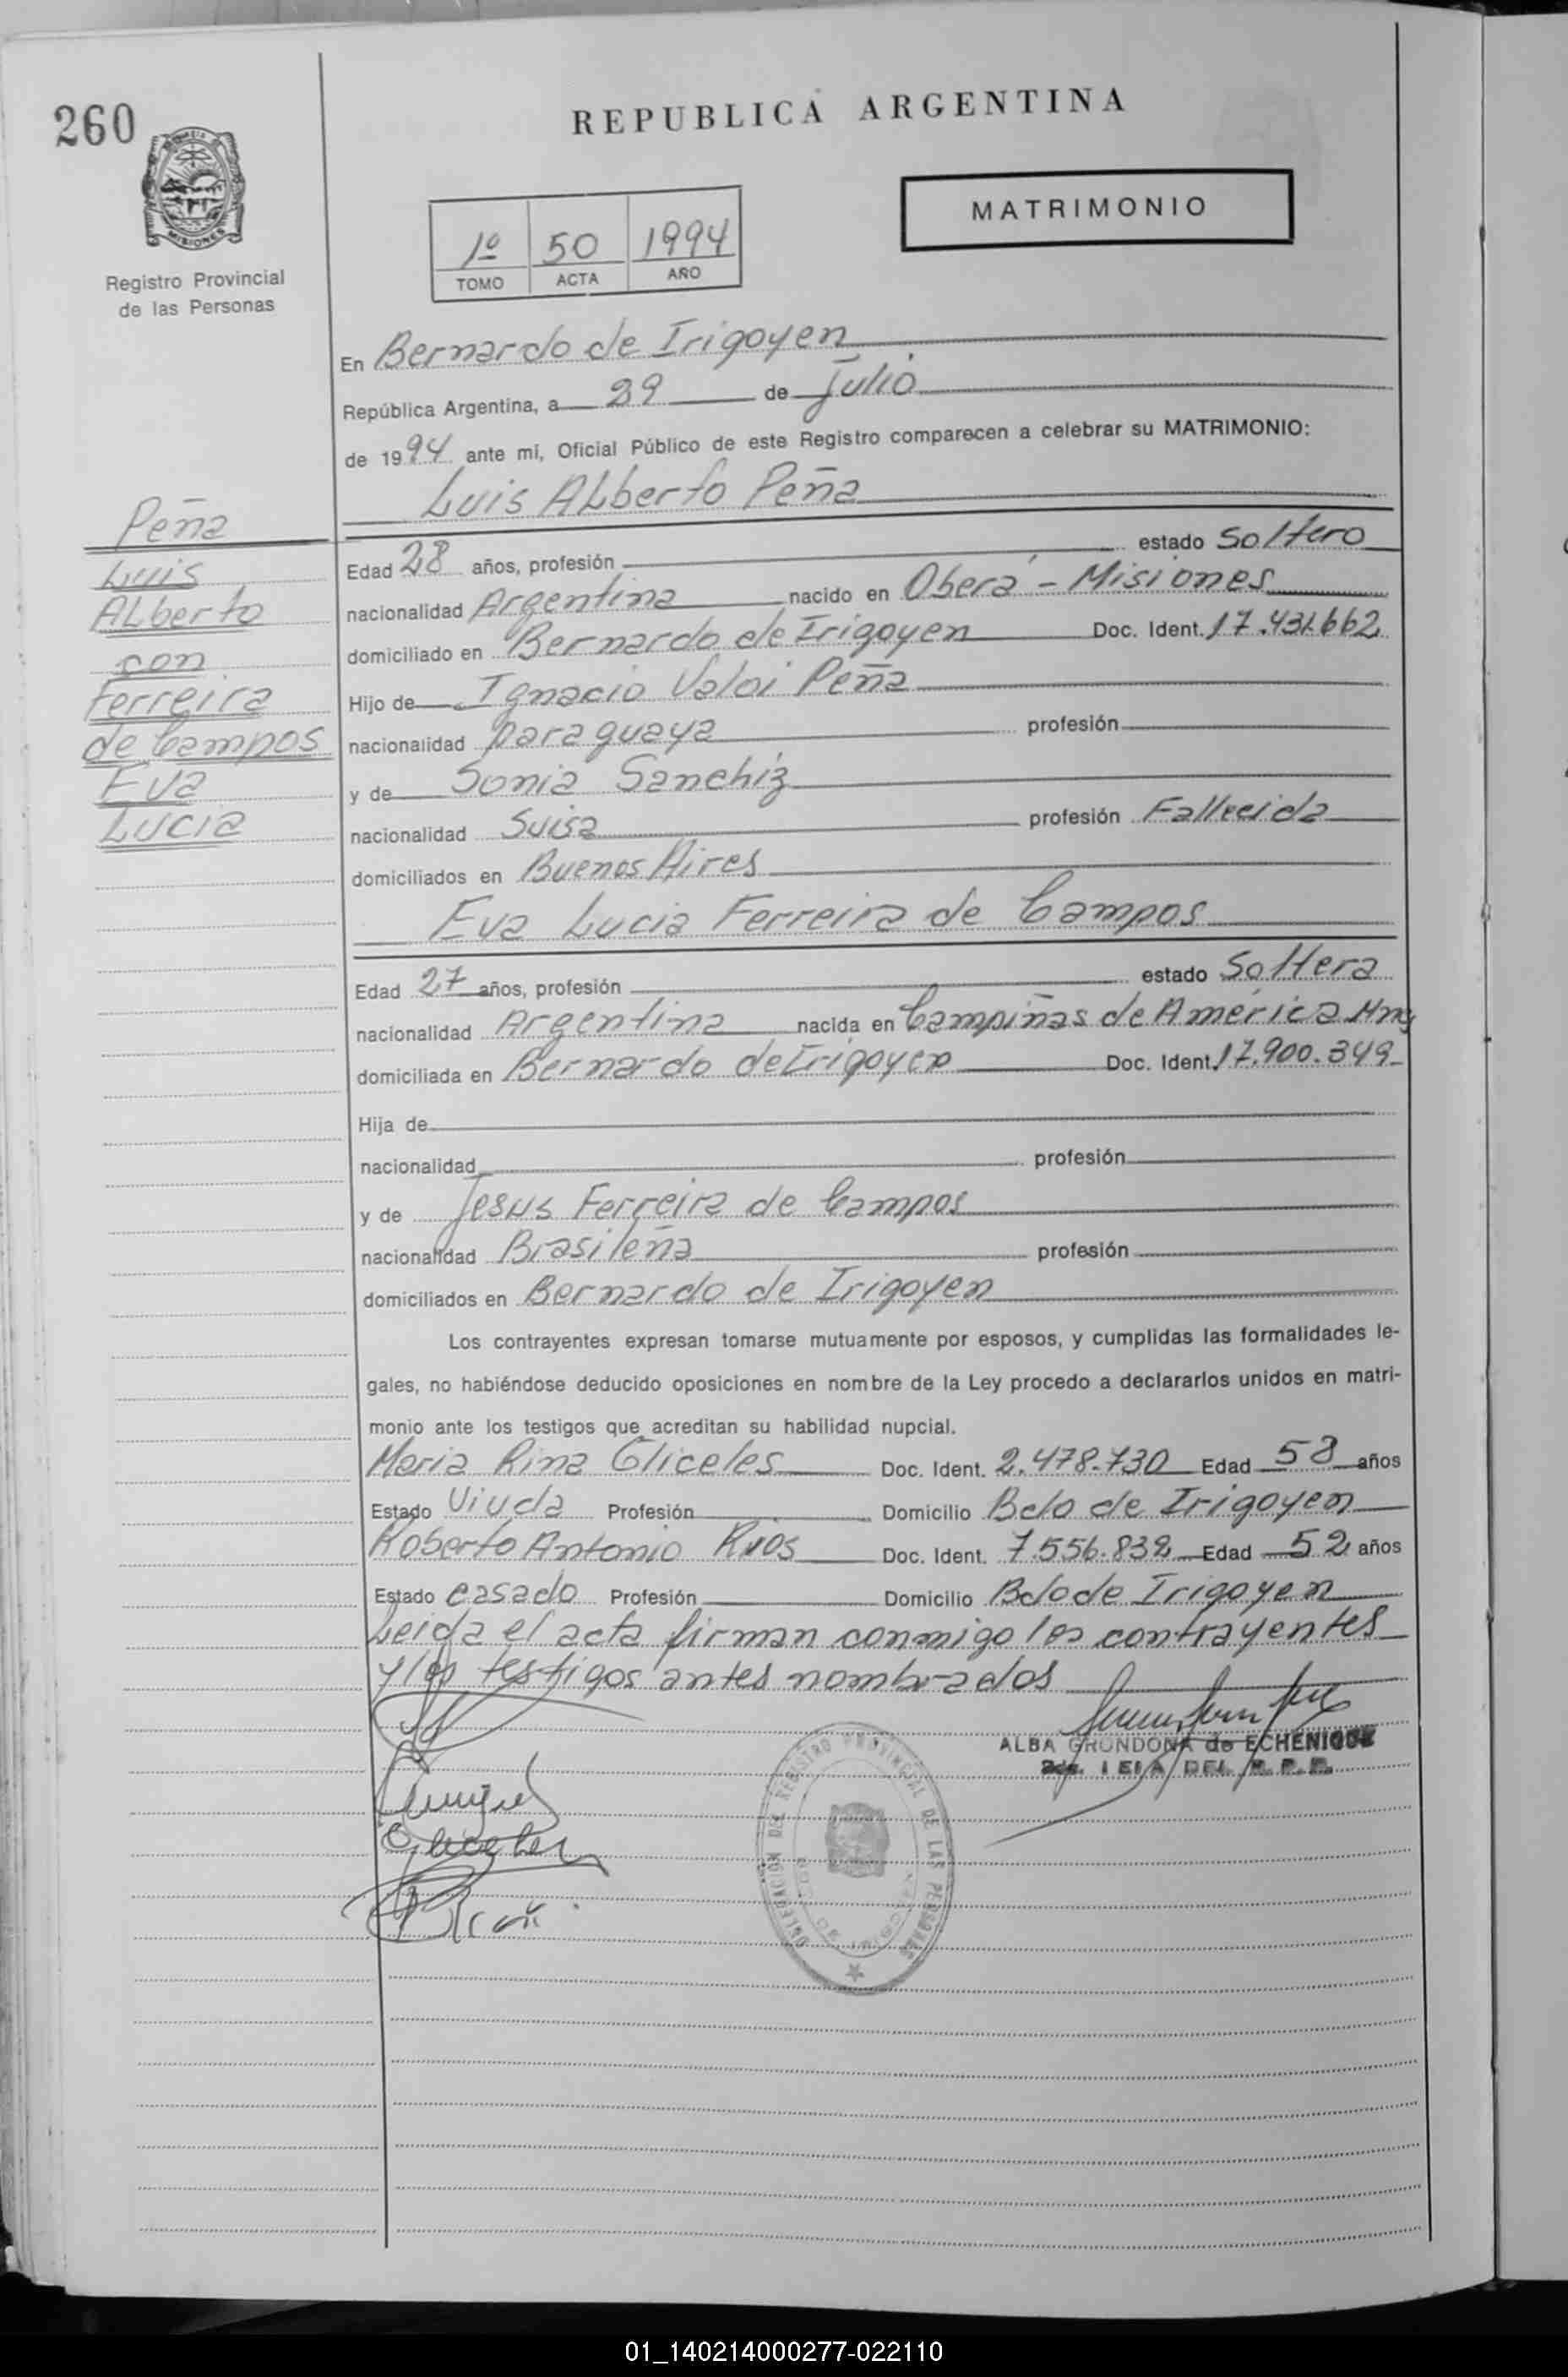 260
REPUBLICA ARGENTINA
MISIONES
Registro Provincial
de las Personas
1º 50 1994
TOMO ACTA AÑO
MATRIMONIO
En Bernardo de Irigoyen
República Argentina, a 29 de Julio
de 1994 ante mi, Oficial Público de este Registro comparecen a celebrar su MATRIMONIO:
Luis ALberto Peña
Peña
Luis
ALberto
con
Ferreira
de Campos
Eva
Lucia
Edad 28 años, profesión estado Soltero
nacionalidad Argentina nacido en Oberá - Misiones
domiciliado en Bernardo de Irigoyen Doc. Ident. 17.431.662
Hijo de Ignacio Valoi Peña
nacionalidad paraguaya profesión
y de Sonia Sanchiz
nacionalidad Suisa profesión Fallecida
domiciliados en Buenos Aires
Eva Lucia Ferreira de Campos
Edad 27 años, profesión estado Soltera
nacionalidad Argentina nacida en Campiñas de América Mns
domiciliada en Bernardo de Irigoyen Doc. Ident. 17.900.349
Hija de
nacionalidad profesión
y de Jesus Ferreira de Campos
nacionalidad Brasileña profesión
domiciliados en Bernardo de Irigoyen
Los contrayentes expresan tomarse mutuamente por esposos, y cumplidas las formalidades le-
gales, no habiéndose deducido oposiciones en nombre de la Ley procedo a declararlos unidos en matri-
monio ante los testigos que acreditan su habilidad nupcial.
Maria Rina Gliceles Doc. Ident. 2.478.730 Edad 58 años
Estado Viuda Profesión Domicilio Bdo de Irigoyen
Roberto Antonio Rios Doc. Ident. 7.556.832 Edad 52 años
Estado casado Profesión Domicilio Bdo de Irigoyen
Leida el acta firman conmigo los contrayentes
y los testigos antes nombrados
ALBA GRONDONA de ECHENIQUE
DEL R. P. P.
DELEGACION DEL REGISTRO PROVINCIAL DE LAS PERSONAS
01_140214000277-022110